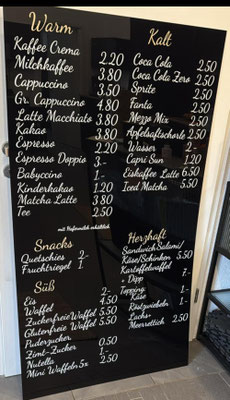 Warm
Kaffee Crema 2.20
Milchkaffee 3.80
Cappuccino 3.50
Gr. Cappuccino 4.80
Latte Macchiato 3.80
Kakao 3.80
Espresso 2.20
Espresso Doppio 3.-
Babyccino 1.-
Kinderkakao 1.20
Matcha Latte 3.80
Tee 2.50
mit Hafermilch erhältlich
Snacks
Quetschies 2.-
Fruchtriegel 1.-
Süß
Eis 2.-
Waffel 4.50
Zuckerfreie Waffel 5.50
Glutenfreie Waffel 5.50
Puderzucker 0.50
Zimt-Zucker 1.-
Nutella 1.-
Mini Waffeln 5x 2.50
Kalt
Coca Cola 2.50
Coca Cola Zero 2.50
Sprite 2.50
Fanta 2.50
Mezzo Mix 2.50
Apfelsaftschorle 2.50
Wasser 2.-
Capri Sun 1.20
Eiskaffee Latte 6.50
Iced Matcha 5.50
Herzhaft
Sandwich Salami/
Käse/Schinken 5.50
Kartoffelwaffel 7.-
+ Dipp
Topping 1.-
Käse
Röstzwiebeln 1.-
Lachs-
Meerrettich 2.50